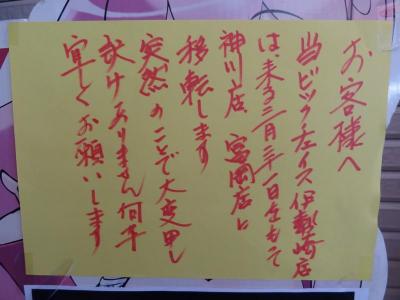 お客様へ
当ビック左イス伊勢崎店
は、来る三月三十一日をもって
神川店 富岡店に
移転します
突然のことで大変申し
訳けありません何卒
宜しくお願いします